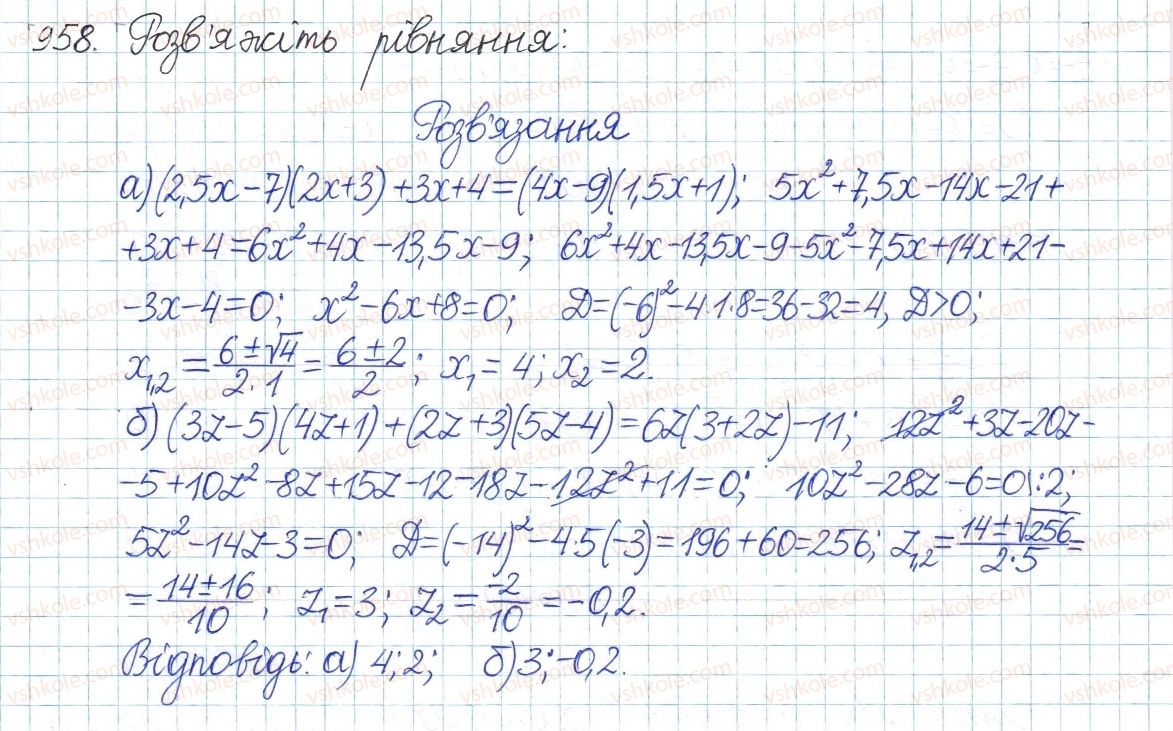 958. Розв'яжіть рівняння:
Розв'язання
а) (2,5x-7)(2x+3)+3x+4=(4x-9)(1,5x+1); 5x²+7,5x-14x-21+
+3x+4=6x²+4x-13,5x-9; 6x²+4x-13,5x-9-5x²-7,5x+14x+21-
-3x-4=0; x²-6x+8=0; D=(-6)²-4·1·8=36-32=4, D>0;
x₁,₂ = (6±√4)/(2·1) = (6±2)/2; x₁=4; x₂=2.
б) (3z-5)(4z+1)+(2z+3)(5z-4)=6z(3+2z)-11; 12z²+3z-20z-
-5+10z²-8z+15z-12-18z-12z²+11=0; 10z²-28z-6=0|:2;
5z²-14z-3=0; D=(-14)²-4·5(-3)=196+60=256; z₁,₂=(14±√256)/(2·5)=
=(14±16)/10; z₁=3; z₂=-2/10=-0,2.
Відповідь: а) 4; 2; б) 3; -0,2.